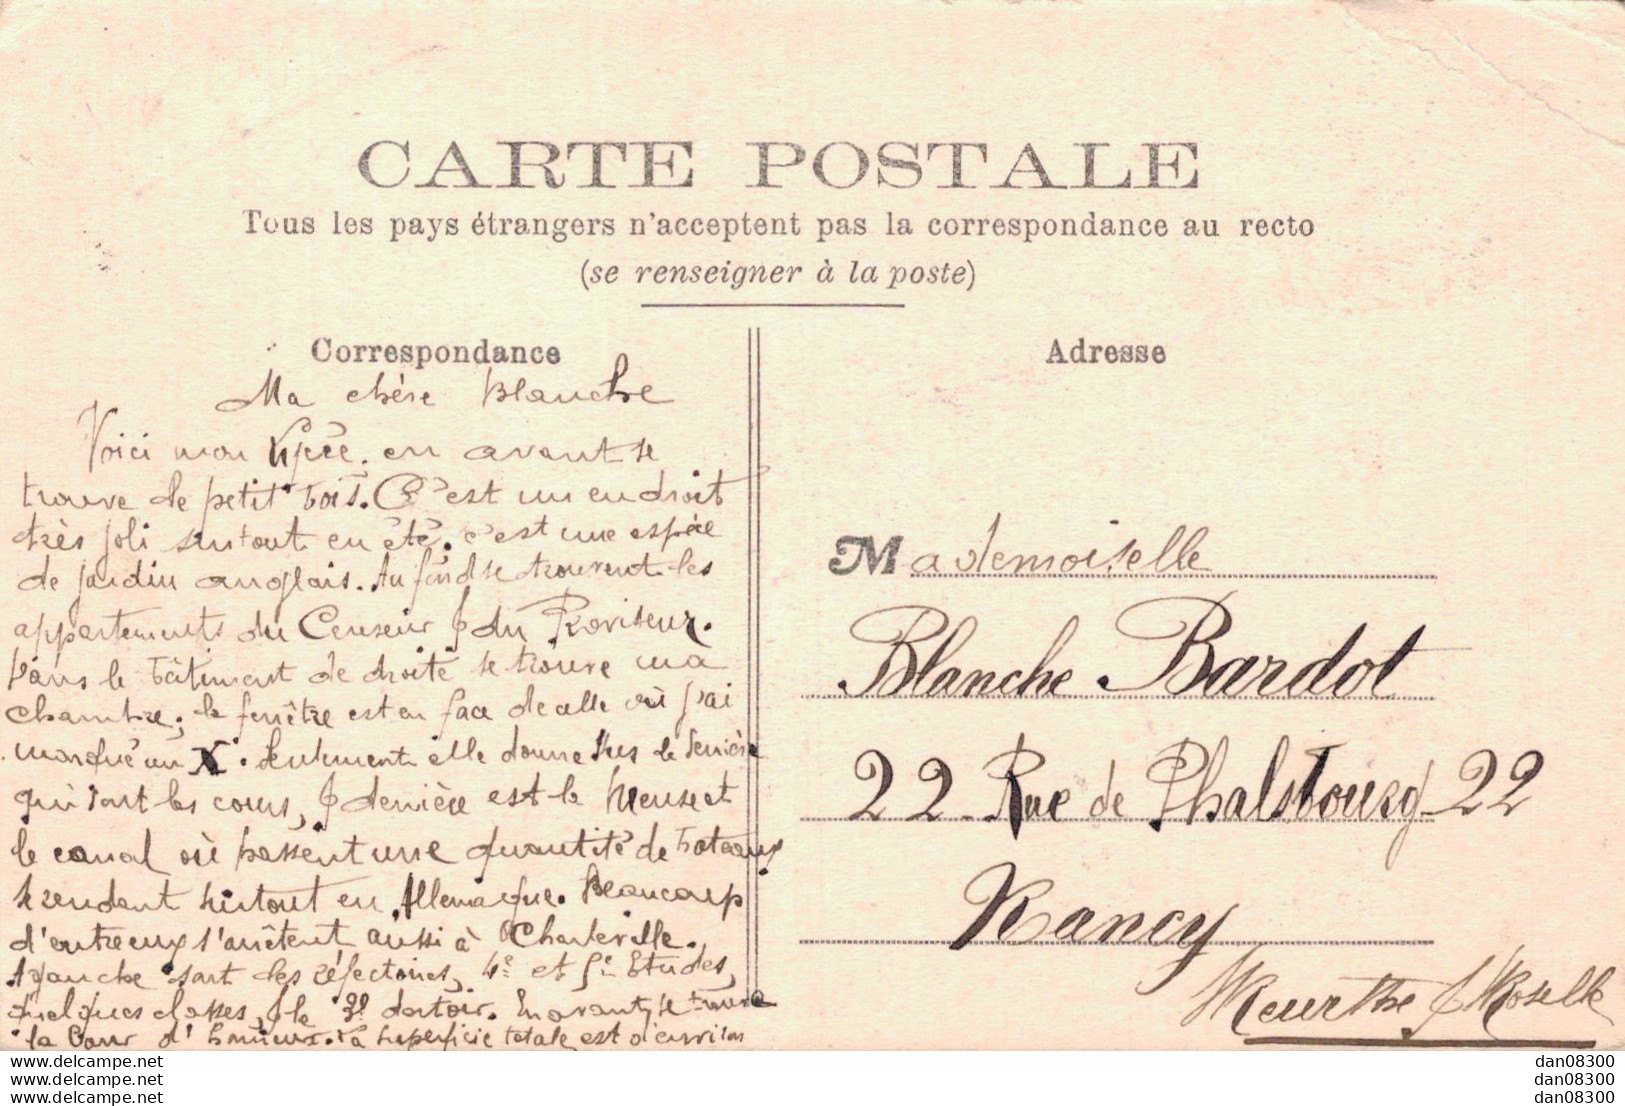 CARTE POSTALE
Tous les pays étrangers n'acceptent pas la correspondance au recto
(se renseigner à la poste)
Correspondance
Ma chère Blanche
Voici mon lycée. en avant se
trouve le petit bois. C'est un endroit
très joli surtout en été. c'est une espèce
de jardin anglais. Au fond se trouvent les
appartements du Censeur & du Proviseur.
Dans le bâtiment de droite se trouve ma
chambre; la fenêtre est en face de celle où j'ai
marqué un X. Seulement elle donne sus le derrière
qui sont les cours, & derrière est la Meuse et
le canal où passent une quantité de bateaux
se rendant surtout en Allemagne. Beaucoup
d'entre eux s'arrêtent aussi à Charleville.
A gauche sont les réfectoires, 4e et 5e Etudes,
quelques classes, & le 3e dortoir. En avant, se trouve
la Cour d'honneur. La superficie totale est d'environ
Adresse
Mademoiselle
Blanche Bardot
22 Rue de Phalsbourg 22
Nancy
Meurthe & Moselle
dan08300
dan08300
dan08300